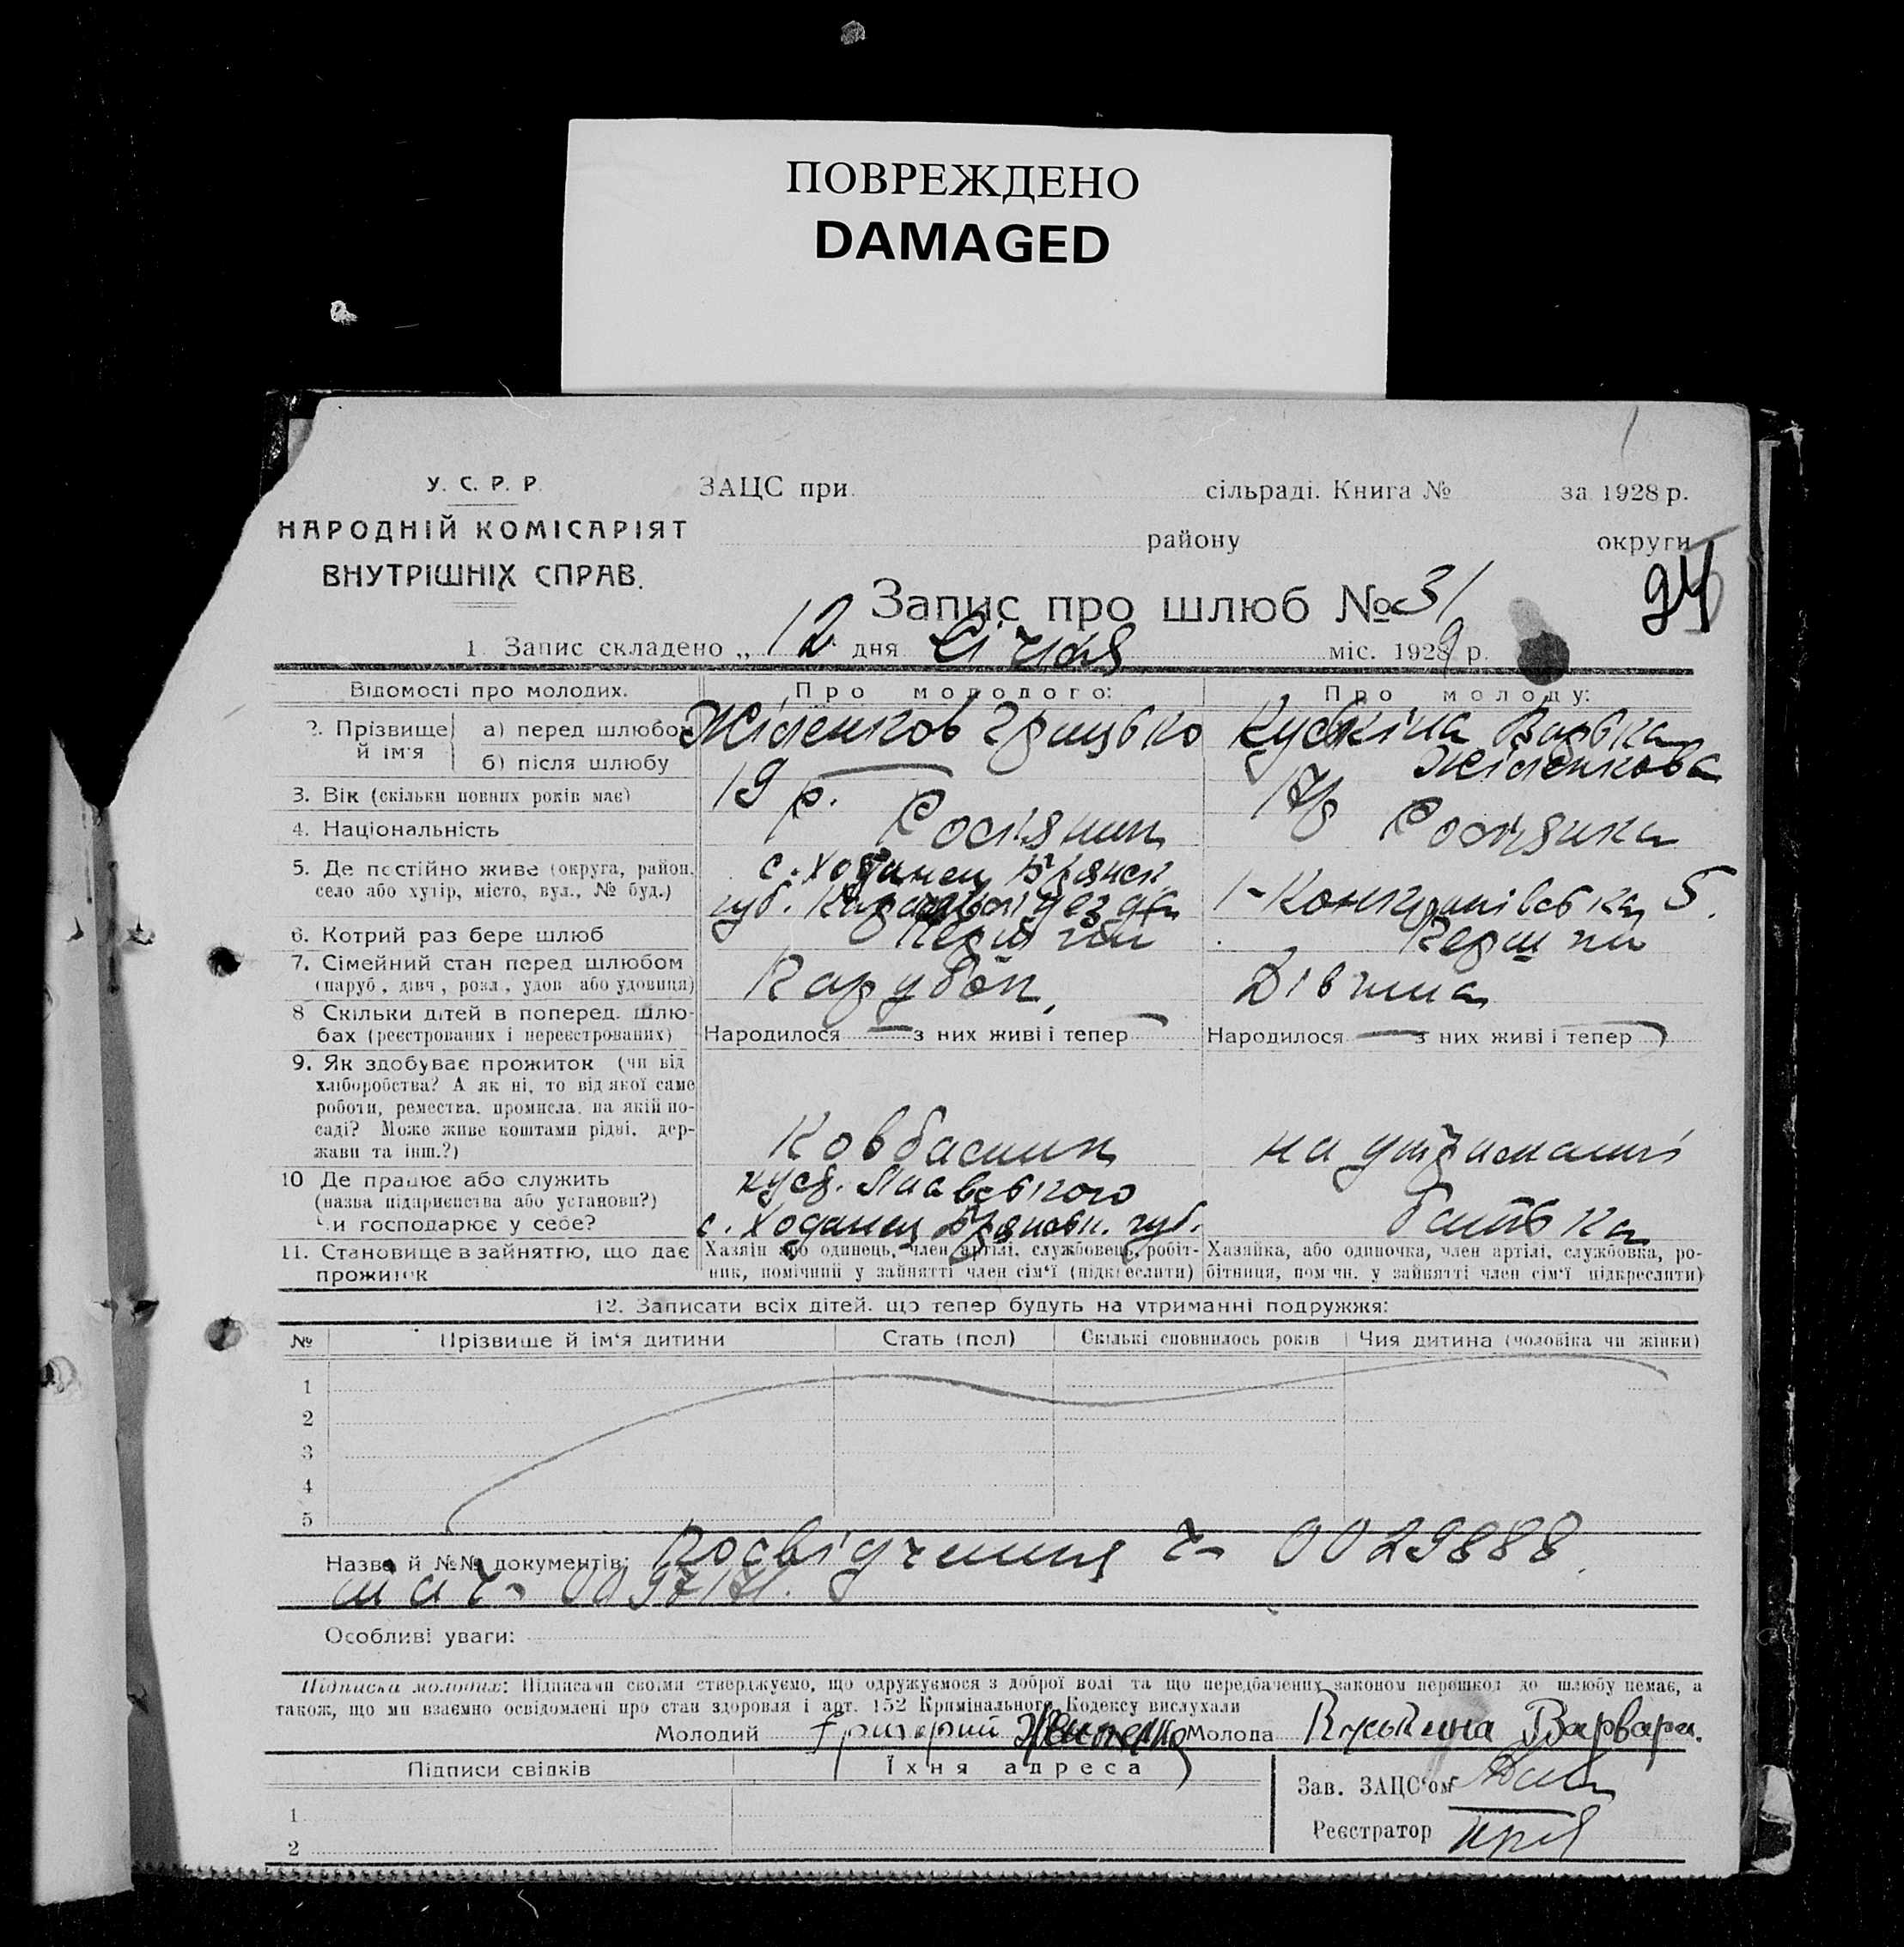 ПОВРЕЖДЕНО
DAMAGED
У. С. Р. Р.
НАРОДНІЙ КОМІСАРІЯТ
ВНУТРІШНІХ СПРАВ.
ЗАЦС при сільраді. Книга № за 1928 р.
району округи
94
Запис про шлюб № 31
1. Запис складено „ 12 дня Січня міс. 1929 р.
Відомості про молодих. Про молодого: Про молоду:
2. Прізвище й ім'я
а) перед шлюбом Гришько Варька
б) після шлюбу
3. Вік (скільки повних років має) 19 р.
4. Національність Росіянин Росіянка
5. Де постійно живе (округа, район, село або хутір, місто, вул., № буд.) с. Ходанец Брянск губ.
6. Котрий раз бере шлюб Перший Перший
7. Сімейний стан перед шлюбом (паруб., дівч., розл., удов. або удовиця) Парубок Дівчина
8 Скільки дітей в поперед. шлюбах (реєстрованих і нереєстрованих) Народилося — з них живі і тепер Народилося — з них живі і тепер
9. Як здобуває прожиток (чи від
хліборобства? А як ні, то від якої саме
роботи, ремества, промисла, на якій по-
саді? Може живе коштами рідні, дер-
жави та інш.?) Ковбасник на утриманні
10 Де працює або служить
(назва підприємства або установи?)
Чи господарює у себе? с. Ходанец Брянськ. губ. батька
11. Становище в зайняттю, що дає
прожиток
Хазяїн або одинець, член артілі, службовець, робіт-
ник, помічний у зайнятті член сім'ї (підкреслити)
Хазяйка, або одиночка, член артілі, службовка, ро-
бітниця, помічн. у зайнятті член сім'ї підкреслити)
12. Записати всіх дітей, що тепер будуть на утриманні подружжя:
№ Прізвище й ім'я дитини Стать (пол) Скількі сповнилось років Чия дитина (чоловіка чи жінки)
1
2
3
4
5
Назва й №№ документів: Посвідчення ч- 0029888
та ч-
Особливі уваги:
Підписка молодих: Підписами своїми стверджуємо, що одружуємося з доброї волі та що передбачених законом перешкод до шлюбу немає, а
також, що ми взаємно освідомлені про стан здоровля і арт. 152 Кримінального Кодексу вислухали
Молодий Григорий Молода Кускина Варвара.
Підписи свідків Їхня адреса
Зав. ЗАЦС'ом
1
Реєстратор
2